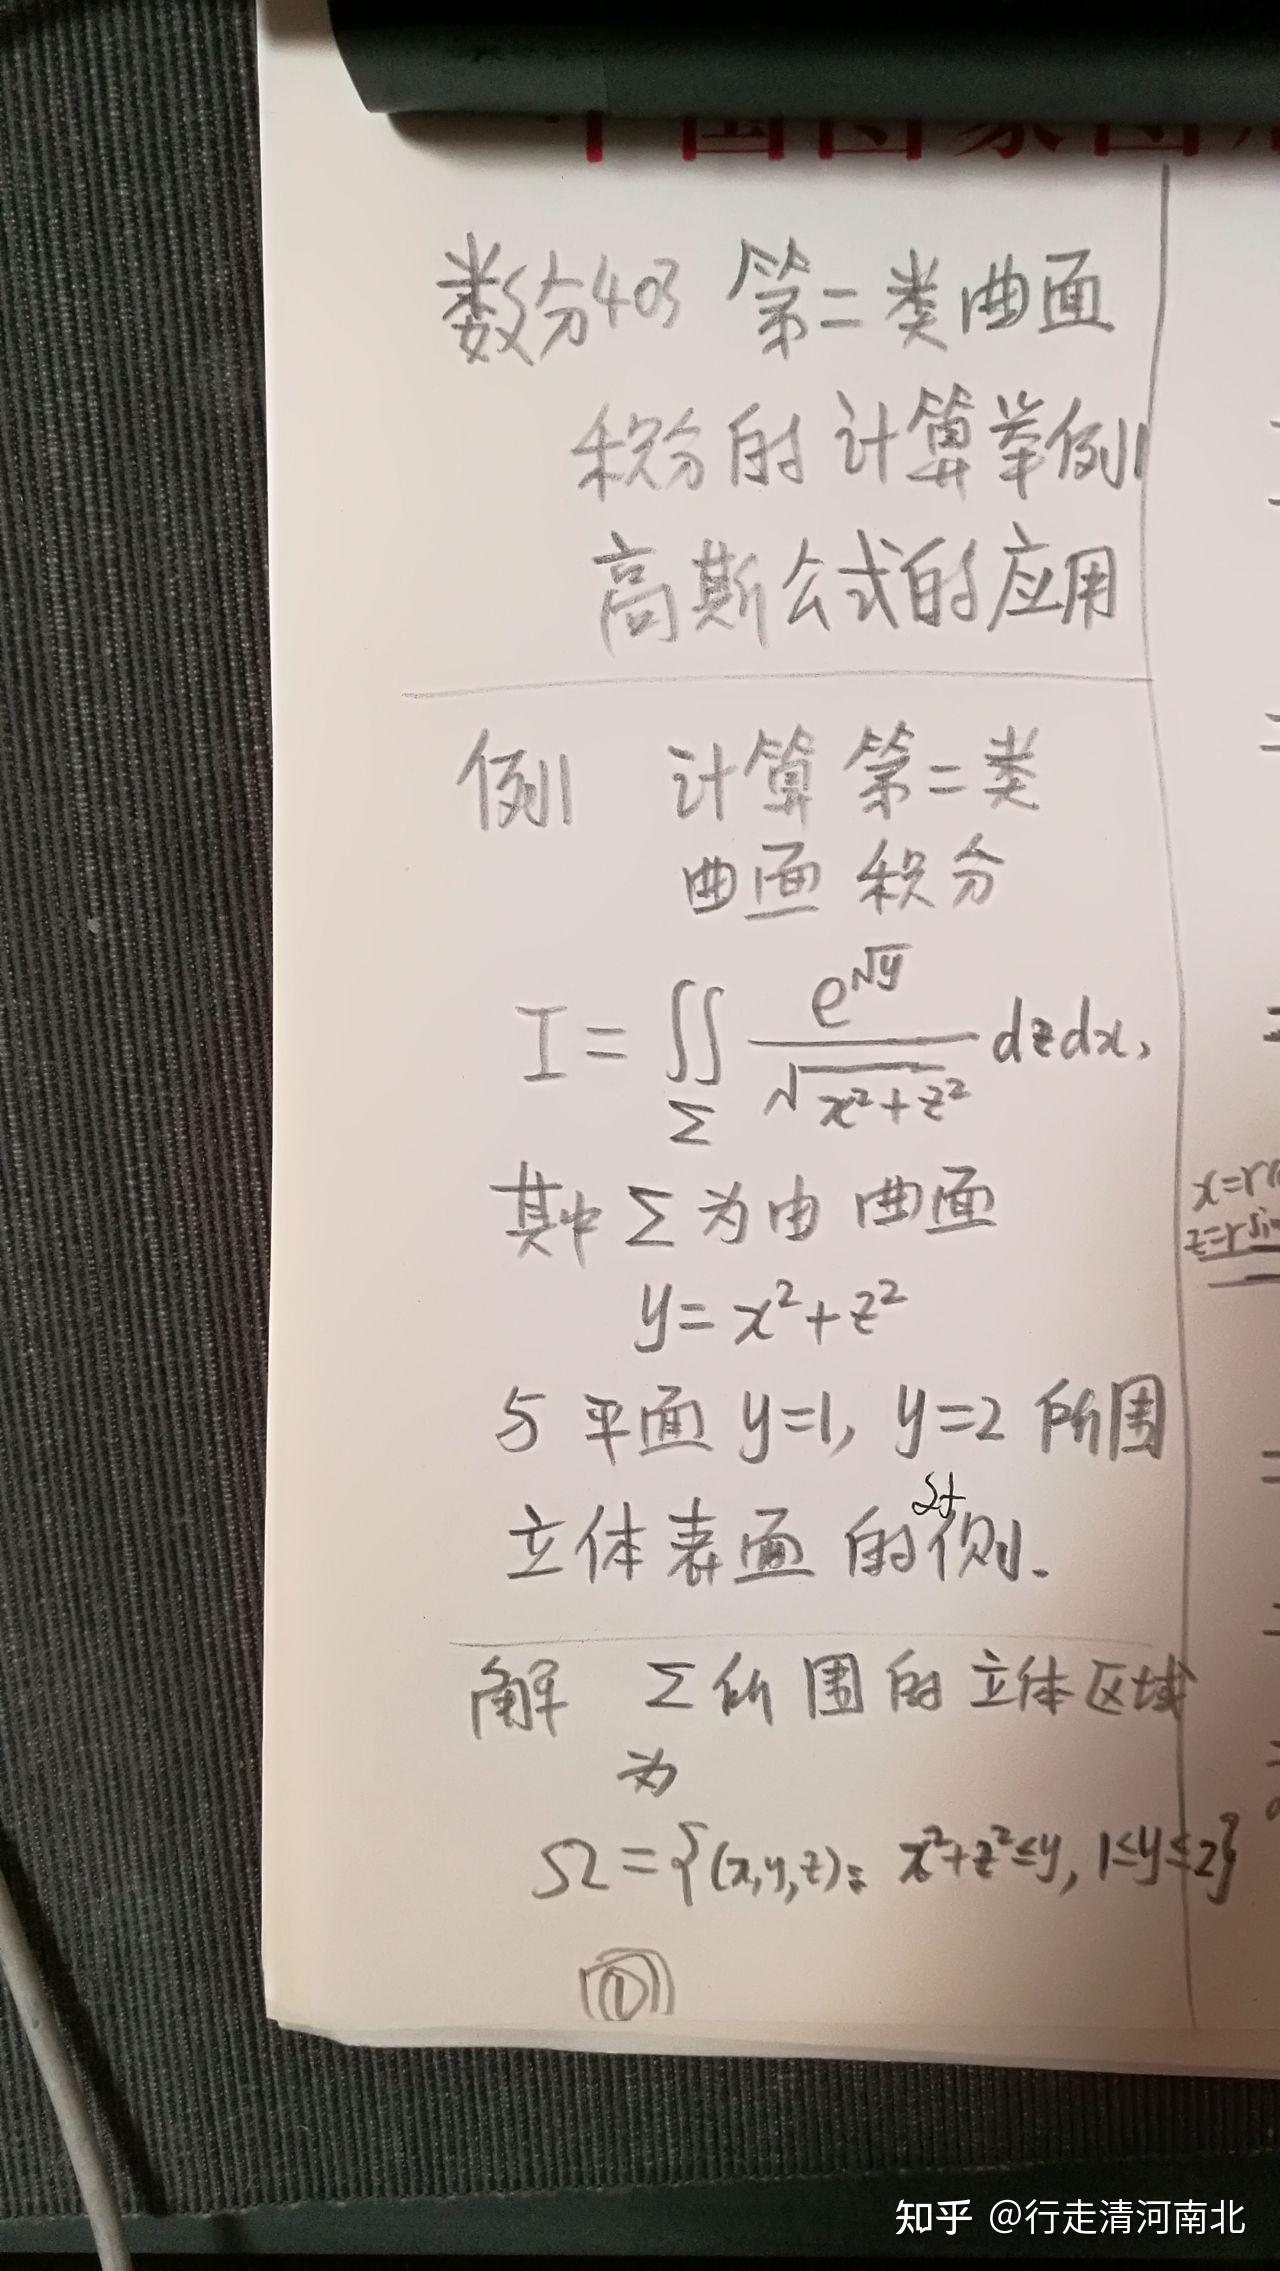 数分403 第二类曲面
积分的计算举例
高斯公式的应用
例 计算第二类
曲面积分
I = ∬_Σ e^{√y} / √(x²+z²) dzdx,
其中Σ为由曲面
y = x²+z²
与平面 y=1, y=2 所围
立体表面的外侧.
解 Σ所围的立体区域
为
Ω = {(x,y,z): x²+z²≤y, 1≤y≤2}
①
z=r
知乎 @行走清河南北